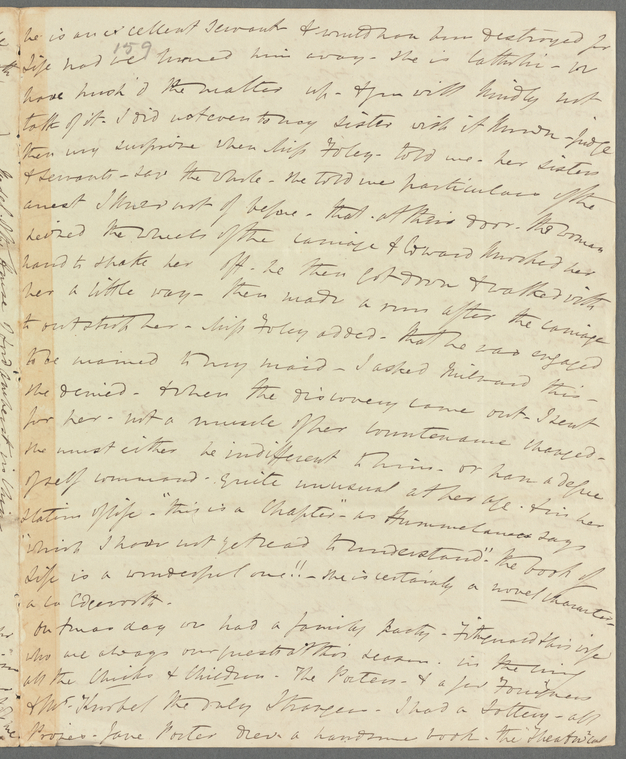 he is an excellent servant & would have been destroyed for
159
Life had we turned him away - she is Catholic - we
have hush'd the matter up - & you will kindly not
talk of it - I did not even to my sister wish it known - judge
then my surprise when Miss Foley - told me - her sisters
& servants - saw the whole - she told me particulars of the
arrest I knew not of before - that - at their door - the Woman
seized the wheels of the carriage & Edward knocked her
hand to shake her off - he then got down & walked with
her a little way - then made a run after the carriage
to outstrip her - Miss Foley added - that he was engaged
to be married to my maid - I asked Milward this -
she denied - & when the discovery came out - I sent
for her - not a muscle of her countenance changed -
she must either be indifferent to him - or have a degree
of self command - quite unusual at her age - & in her
station of life - "this is a Chapter" - as says
"which I have not yet read to understand" - the book of
Life is a wonderful one!! - she is certainly a novel character -
a la Edgeworth.
On Xmas day we had a family Party - & his wife
who are always our guests at this season - in the
all the Chicks & Children - The Porters - & a few Foreigners
& Mr. the only Stranger - I had a Lottery - all
Prizes - Jane Porter drew a handsome book - the Theatrical